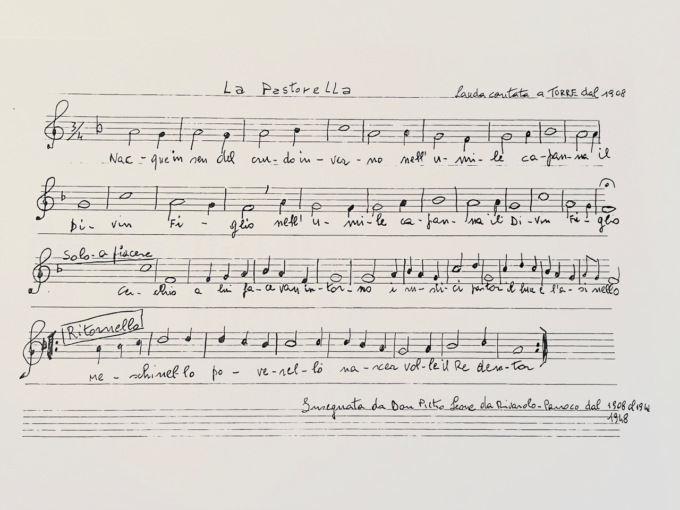 La Pastorella
Lauda cantata a TORRE dal 1908
3/4
Nac-que in sen del cru-do in-ver-no nell' u-mi-le ca-pan-na il
Di-vin Fi-glio nell' u-mi-le ca-pan-na il Di-vin Fi-glio
Solo-a piacere
Cer-chio a lui fa-cevan in-tor-no i ru-sti-ci pastor il bue e l'a-sinello
Ritornello
Me-schinel-lo po-ve-rel-lo na-scer vol-le il Re den-tor
Insegnata da Don Pietro Leone da Rivarolo-Parroco dal 1908 al
1948